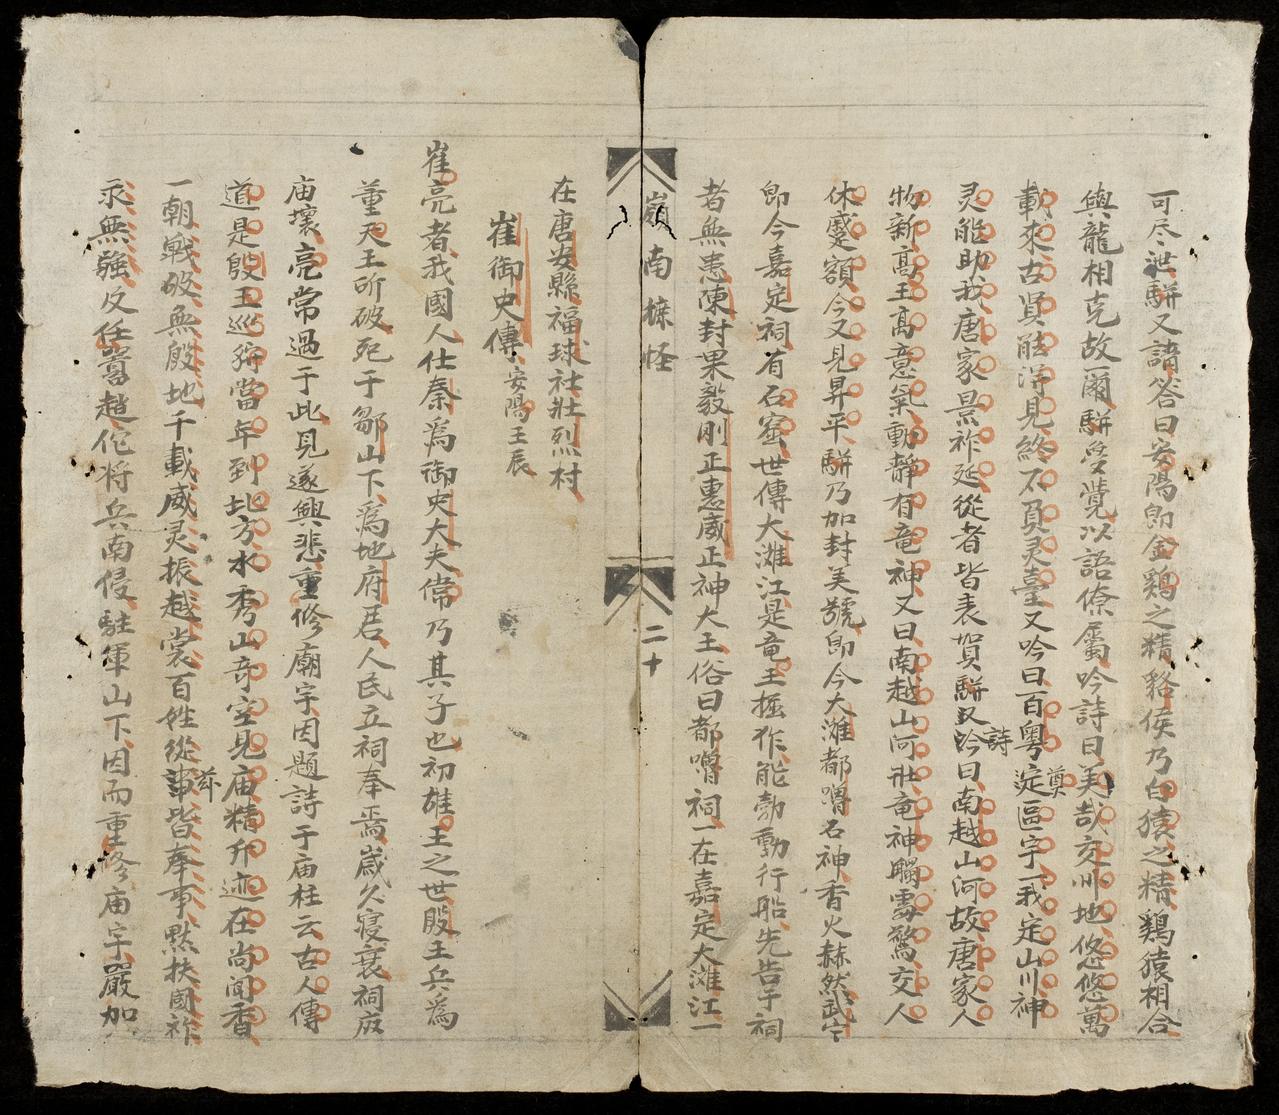 可尽泄駢又請答曰安陽即金鷄之精貉侯乃白猿之精鷄猿相合
與龍相克故爾駢旻覺以語僚屬吟詩曰美哉交州地悠悠萬
載來古賢能得見終不負灵臺又吟曰百粤淀區宇一我定山川神
灵能助我唐家景祚延從者皆表賀駢又吟詩曰南越山河故唐家人
物新高王高意氣動靜有竜神又曰南越山河壯竜神矚雱驚交人
休蹙額今又見昇平駢乃加封美號即今大灘都嚕石神香火赫然武宁
即今嘉定祠有石窑世傳大灘江是竜王掘作能勃動行船先告于祠
者無恙陳封果毅剛正惠威正神大王俗曰都嚕祠一在嘉定大灘江一
嶺南摭怪
二十
在唐安縣福球社壯烈村
崔御史傳安陽王辰
崔亮者我國人仕秦爲御史大夫常乃其子也初雄王之世殷王兵爲
董天王所破死于鄒山下爲地府君人民立祠奉焉歲久寝衰祠庙
庙壞亮常過于此見遂興悲重修廟宇因題詩于庙柱云古人傳
道是殷王巡狩當年到北方水秀山奇空見庙精升迹在尚闻香
一朝戰破無殷地千載威灵振越裳百姓從兹皆奉事默扶國祚
永無彊及任嚣趙佗将兵南侵駐軍山下因而重修庙宇嚴加